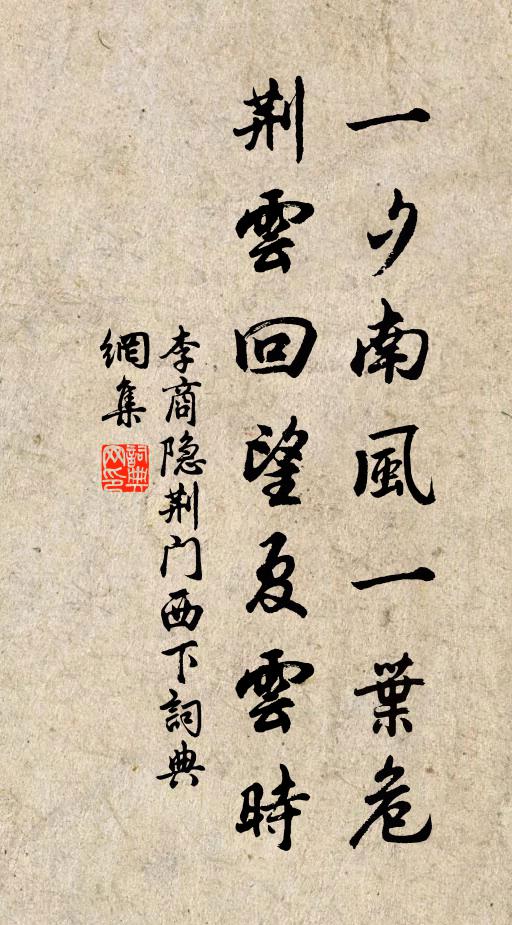 一夕南風一葉危
荆雲回望夏雲時
李商隐荆门西下詞典
網集
詞典網印